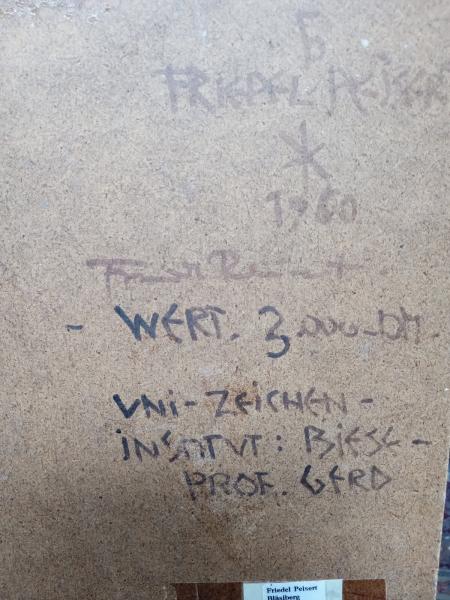 5
FRIEDEL PEISER
1960
- WERT. 3.000.-DM.
UNI-ZEICHEN-
INSTITUT: BIESE-
PROF. GERD
Friedel Peisert
Bläsiberg